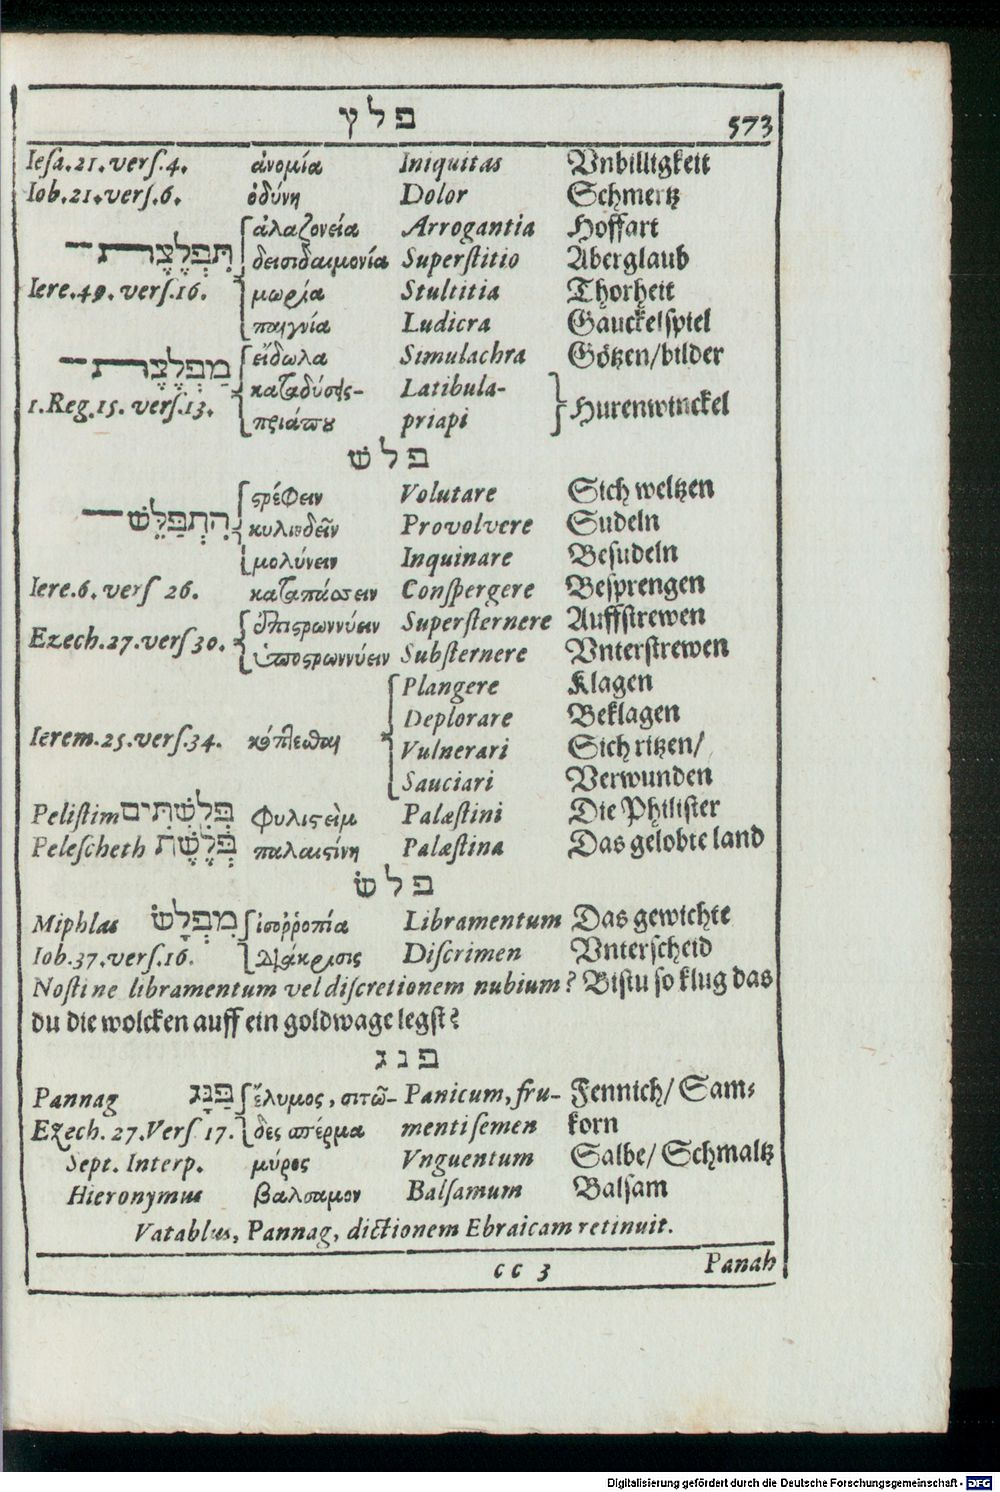 פלץ 573
Iesa.21.vers.4. ἀνομία Iniquitas Vnbilligkeit
Iob.21.vers.6. ὀδύνη Dolor Schmertz
ἀλαζονεία Arrogantia Hoffart
תִּפְלֶצֶת δεισιδαιμονία Superstitio Aberglaub
Iere.49. vers.16. μωρία Stultitia Thorheit
παιγνία Ludicra Gauckelspiel
εἴδωλα Simulachra Götzen/bilder
מִפְלֶצֶת καταδύσης- Latibula-
1.Reg.15. vers.13. πριάπου priapi Hurenwinckel
פלשׁ
στρέφειν Volutare Sich weltzen
הִתְפַּלֵּשׁ κυλινδεῖν Provolvere Sudeln
μολύνειν Inquinare Besudeln
Iere.6. vers 26. καταπάσσειν Conspergere Besprengen
ἐπιστρωννύειν Supersternere Auffstrewen
Ezech.27.vers 30. ὑποστρωννύειν Substernere Vnterstrewen
Plangere Klagen
Deplorare Beklagen
Ierem.25.vers.34. κόπτεσθαι Vulnerari Sich ritzen/
Sauciari Verwunden
Pelistim פְּלִשְׁתִּים Φυλιστεὶμ Palæstini Die Philister
Pelescheth פְּלֶשֶׁת παλαιστίνη Palæstina Das gelobte land
פלשׂ
Miphlas מִפְלָשׂ ἰσοῤῥοπία Libramentum Das gewichte
Iob.37.vers.16. διάκρισις Discrimen Vnterscheid
Nosti ne libramentum vel discretionem nubium? Bistu so klug das
du die wolcken auff ein goldwage legst?
פנג
Pannag פַּנָּג ἔλυμος, σιτῶ- Panicum, fru- Fennich/ Sam-
Ezech. 27.Vers 17. δες σπέρμα menti semen korn
Sept. Interp. μύρος Vnguentum Salbe/ Schmaltz
Hieronymus βαλσαμον Balsamum Balsam
Vatablus, Pannag, dictionem Ebraicam retinuit.
cc 3 Panah
Digitalisierung gefördert durch die Deutsche Forschungsgemeinschaft - DFG